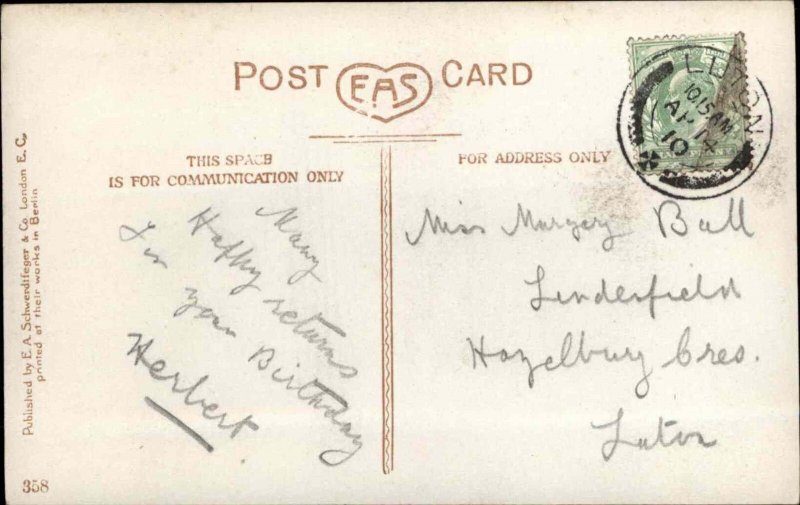 POST EAS CARD
THIS SPACE
IS FOR COMMUNICATION ONLY
FOR ADDRESS ONLY
LUTON
10.15 AM
AP 14
10
Many
Happy returns
for your Birthday
Herbert
Miss Margery Ball
Linderfield
Hazelbury Cres.
Luton
Published by E. A. Schwerdtfeger & Co. London E. C.
printed at their works in Berlin
358